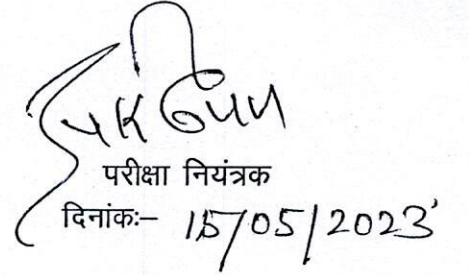 परीक्षा नियंत्रक
दिनांकः– 15/05/2023